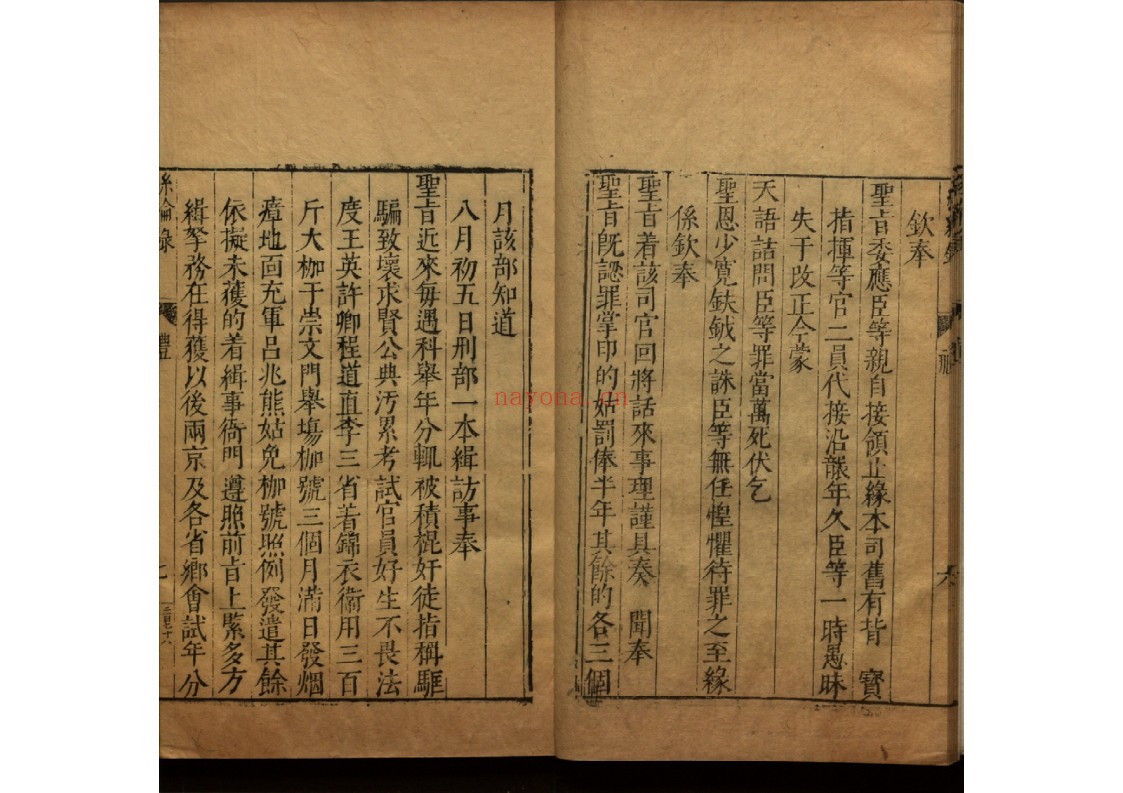 欽奉
聖旨委應臣等親自接領止緣本司舊有背 寶
指揮等官二員代接沿襲年久臣等一時愚昧
失于改正今蒙
天語詰問臣等罪當萬死伏乞
聖恩少寬鈇鉞之誅臣等無任惶懼待罪之至緣
係欽奉
聖旨着該司官回將話來事理謹具奏 聞奉
聖旨旣認罪掌印的姑罰俸半年其餘的各三個
月該部知道
八月初五日刑部一本緝訪事奉
聖旨近來每遇科舉年分輒被積棍奸徒指稱誆
騙致壞求賢公典汚累考試官員好生不畏法
度王英許卿程道直李三省着錦衣衞用三百
斤大枷于崇文門舉塲枷號三個月滿日發烟
瘴地面充軍呂兆熊姑免枷號照例發遣其餘
依擬未獲的着緝事衙門遵照前旨上緊多方
緝拏務在得獲以後兩京及各省鄉會試年分
絲綸錄
禮
nayona.cn